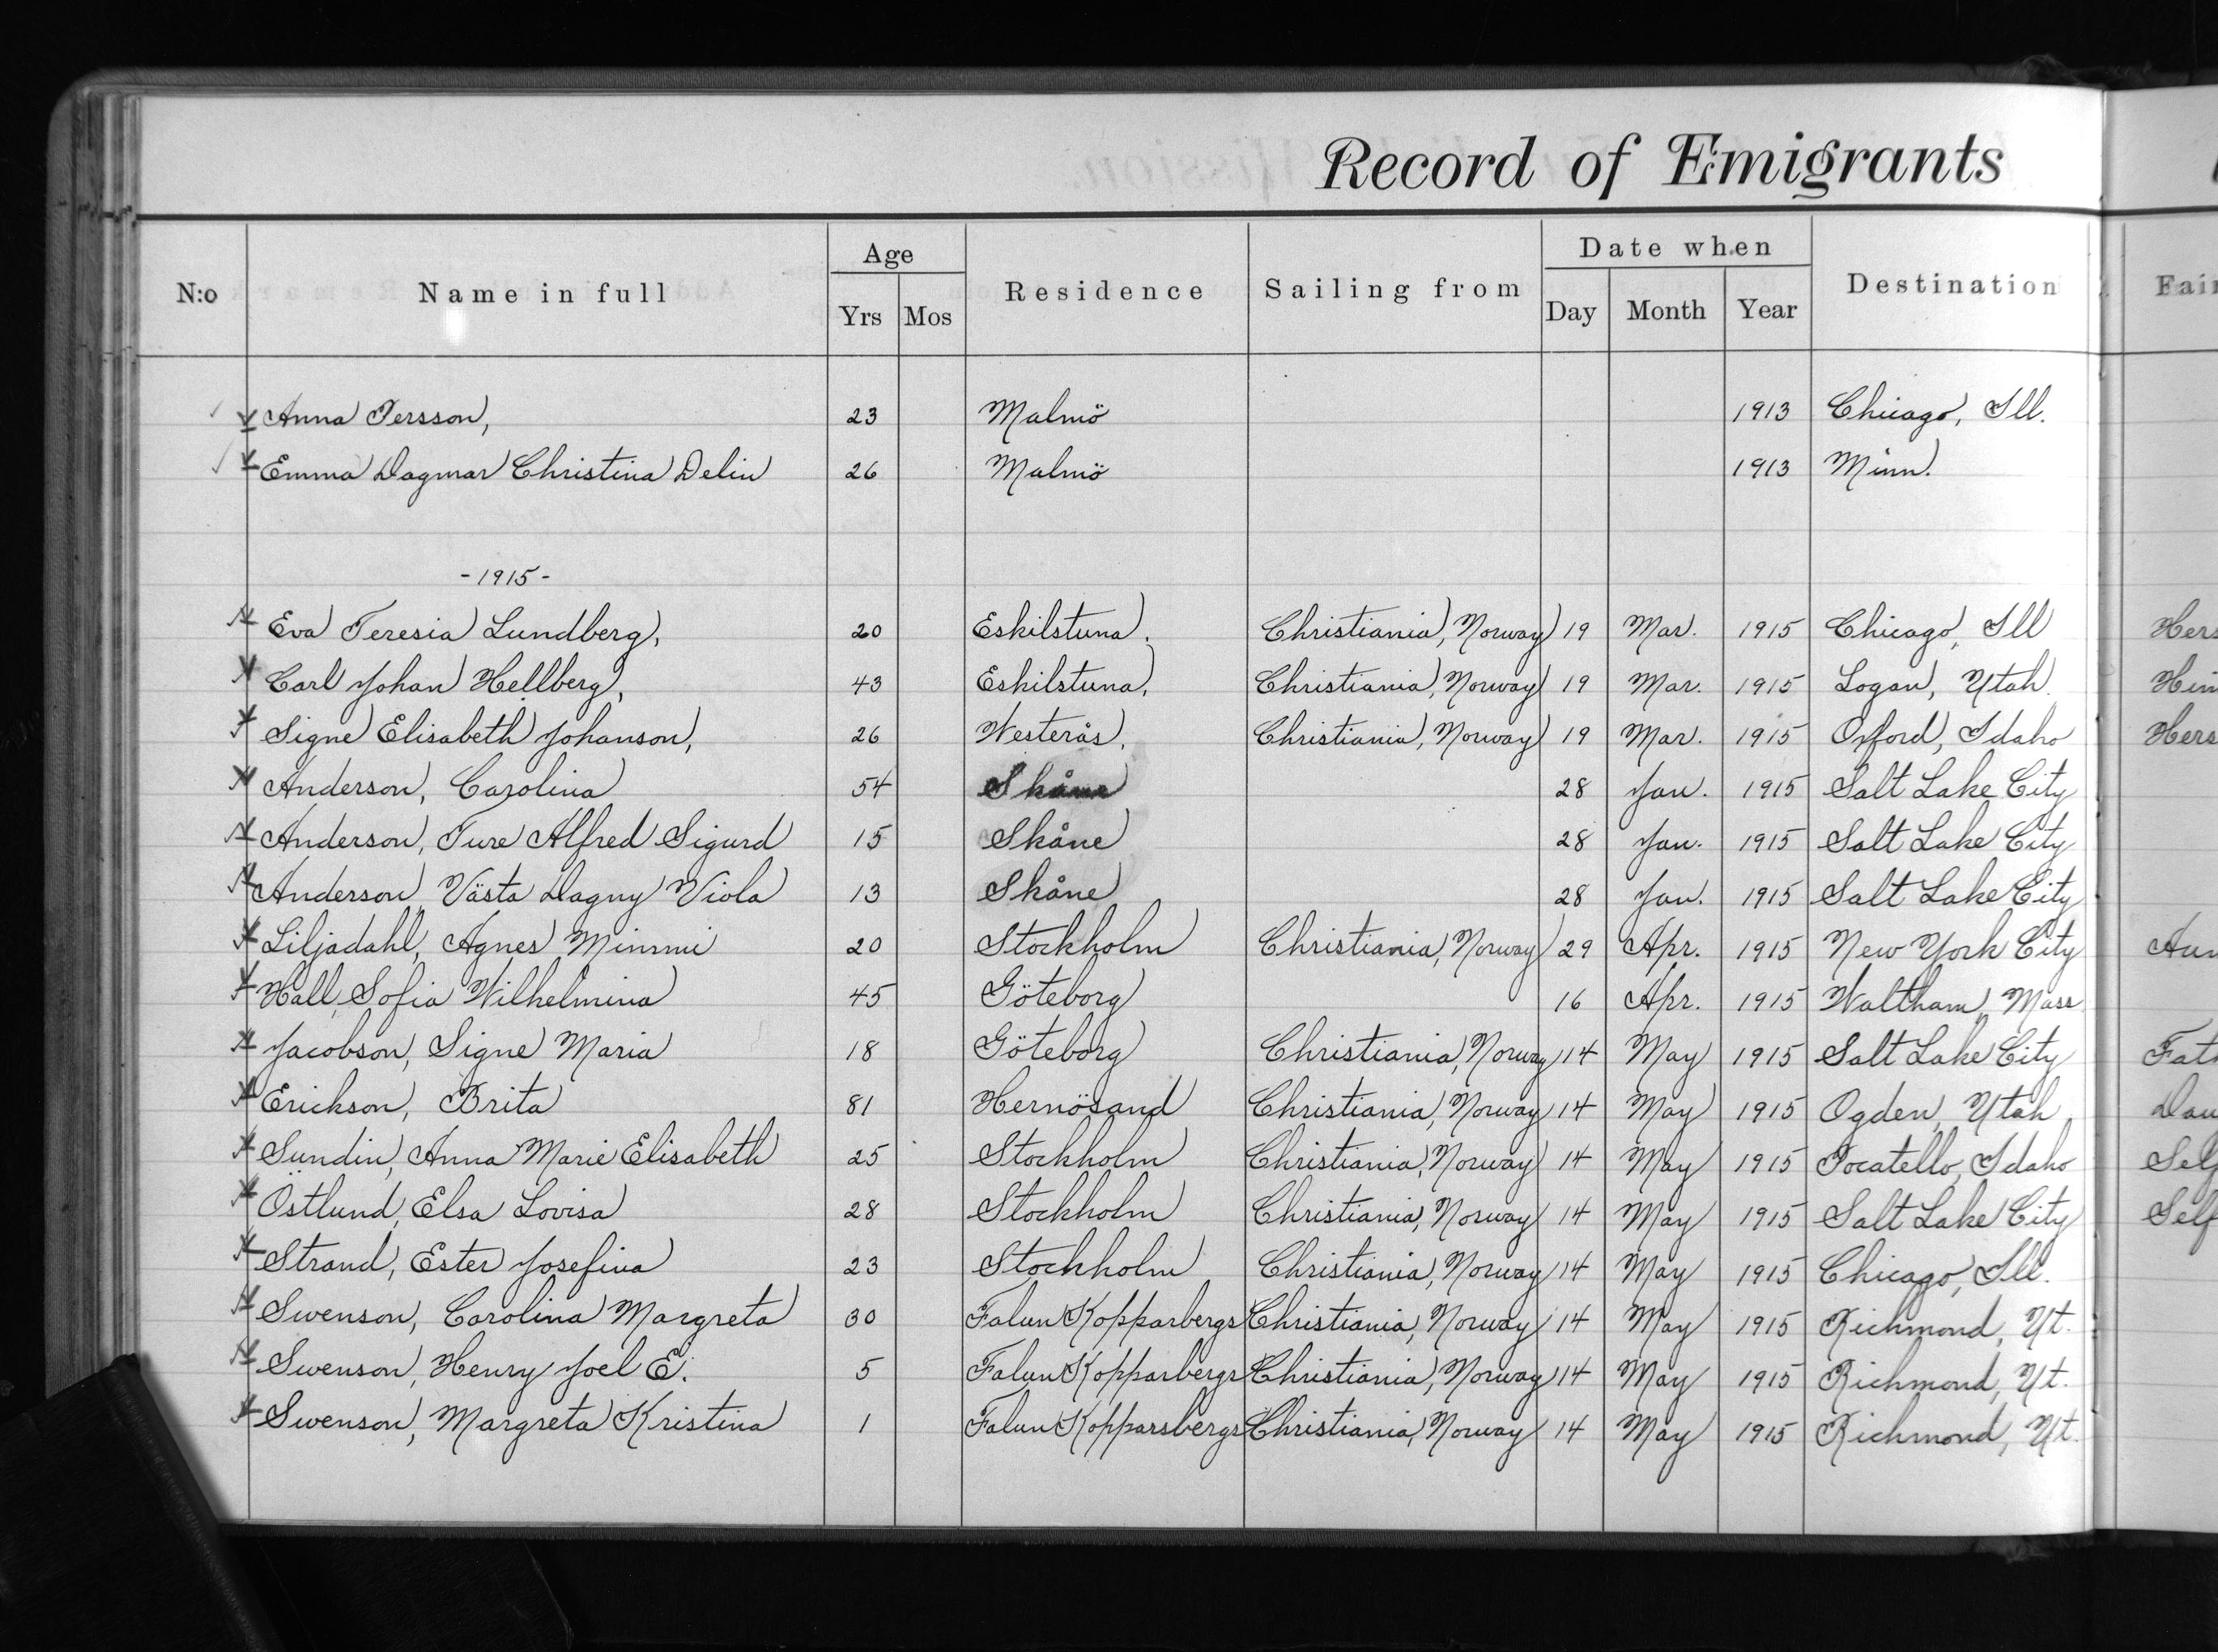 Record of Emigrants
N:o Name in full Age Yrs Mos Residence Sailing from Date when Day Month Year Destination
Anna Persson, 23 Malmö 1913 Chicago, Ill.
Emma Dagmar Christina Delin 26 Malmö 1913 Minn.
- 1915 -
Eva Teresia Lundberg, 20 Eskilstuna. Christiania, Norway 19 Mar. 1915 Chicago, Ill
Carl Johan Hellberg, 43 Eskilstuna, Christiania, Norway 19 Mar. 1915 Logan, Utah.
Signe Elisabeth Johanson, 26 Westerås, Christiania, Norway 19 Mar. 1915 Oxford, Idaho
Anderson, Carolina 54 Skåne 28 Jan. 1915 Salt Lake City
Anderson, Ture Alfred Sigurd 15 Skåne 28 Jan. 1915 Salt Lake City
Anderson, Västa Dagny Viola 13 Skåne 28 Jan. 1915 Salt Lake City
Liljadahl, Agnes Mimmi 20 Stockholm Christiania, Norway 29 Apr. 1915 New York City
Hall, Sofia Wilhelmina 45 Göteborg 16 Apr. 1915 Waltham, Mass
Jacobson, Signe Maria 18 Göteborg Christiania, Norway 14 May 1915 Salt Lake City
Erickson, Brita 81 Hernösand Christiania, Norway 14 May 1915 Ogden, Utah
Sundin, Anna Marie Elisabeth 25 Stockholm Christiania, Norway 14 May 1915 Pocatello, Idaho
Östlund, Elsa Lovisa 28 Stockholm Christiania, Norway 14 May 1915 Salt Lake City
Strand, Ester Josefina 23 Stockholm Christiania, Norway 14 May 1915 Chicago, Ill.
Swenson, Carolina Margreta 30 Falun Kopparbergs Christiania, Norway 14 May 1915 Richmond, Ut.
Swenson, Henry Joel E. 5 Falun Kopparbergs Christiania, Norway 14 May 1915 Richmond, Ut.
Swenson, Margreta Kristina 1 Falun Kopparsbergs Christiania, Norway 14 May 1915 Richmond, Ut.